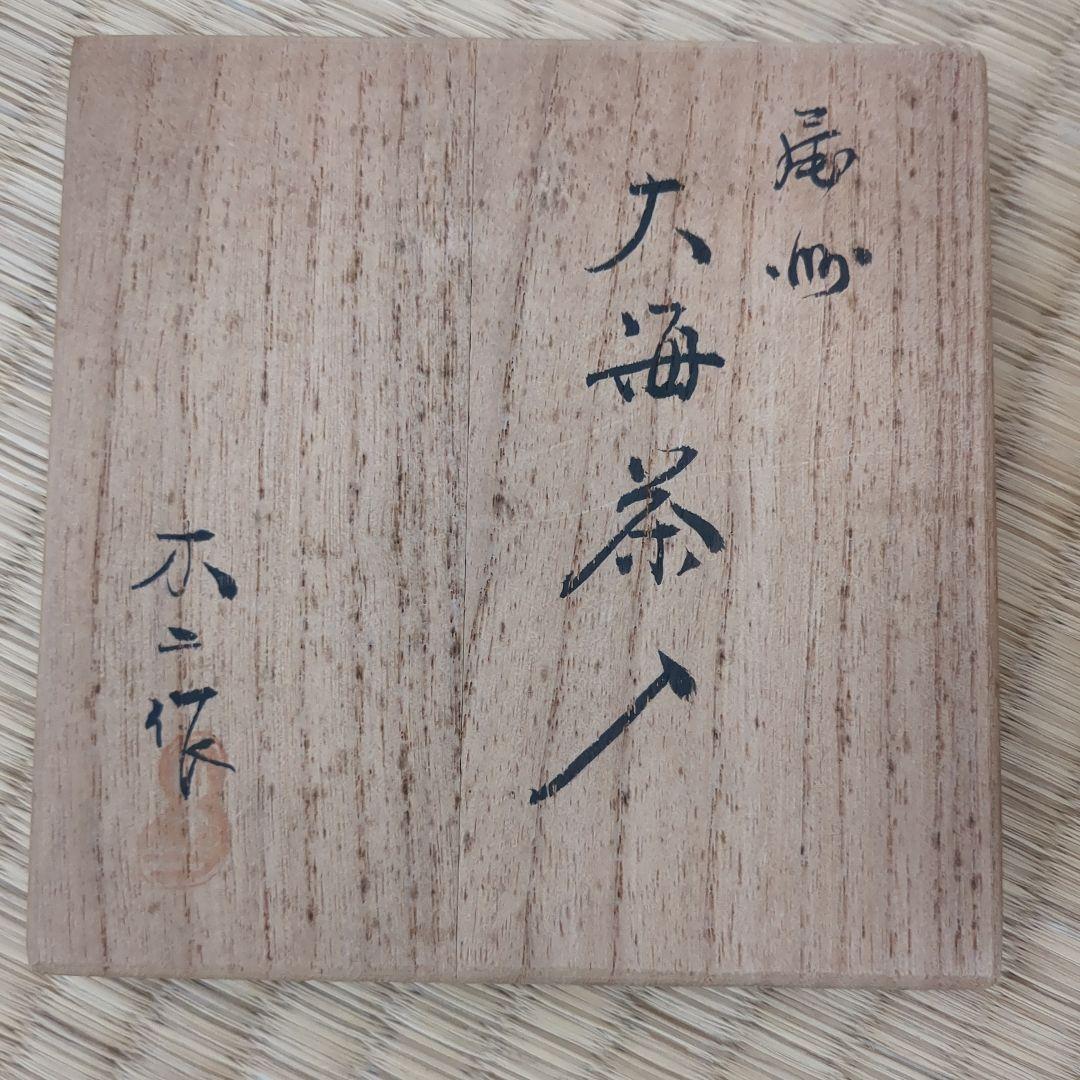 尾州
大海茶入
木二作